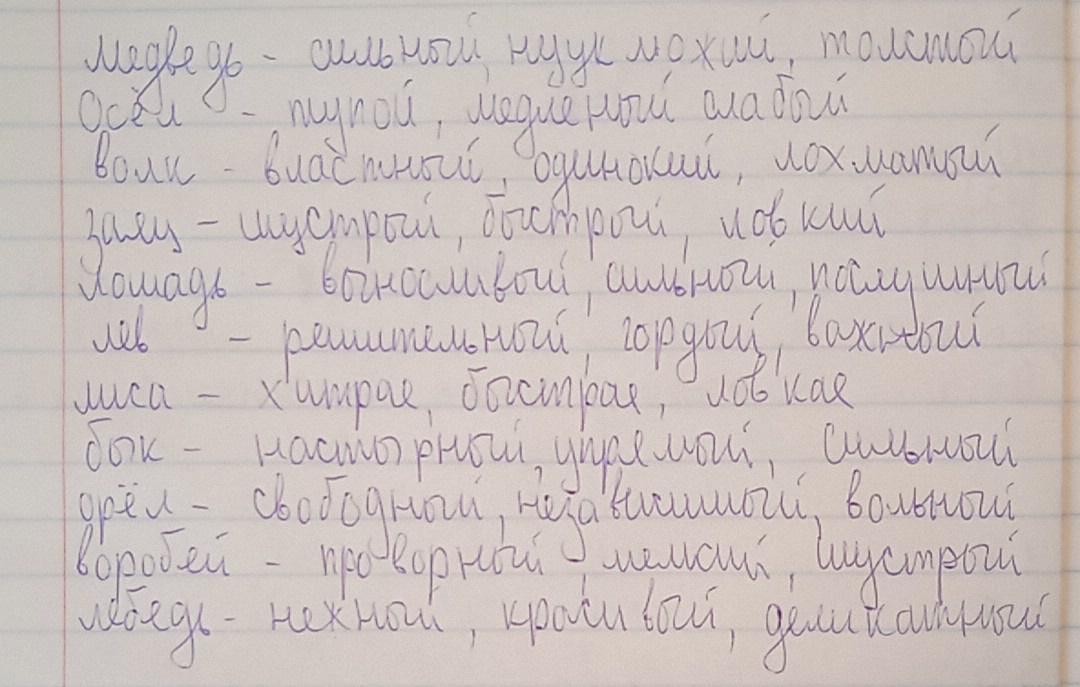 медведь - сильный, неуклюжий, толстый
Осёл - тупой, медленый слабый
волк - властный, одинокий, лохматый
заяц - шустрый, быстрый, ловкий
Лошадь - выносливый, сильный, послушный
лев - решительный, гордый, важный
лиса - хитрая, быстрая, ловкая
бык - настырный, упрямый, сильный
орёл - свободный, независимый, вольный
воробей - проворный, мелкий, шустрый
лебедь - нежный, красивый, деликатный